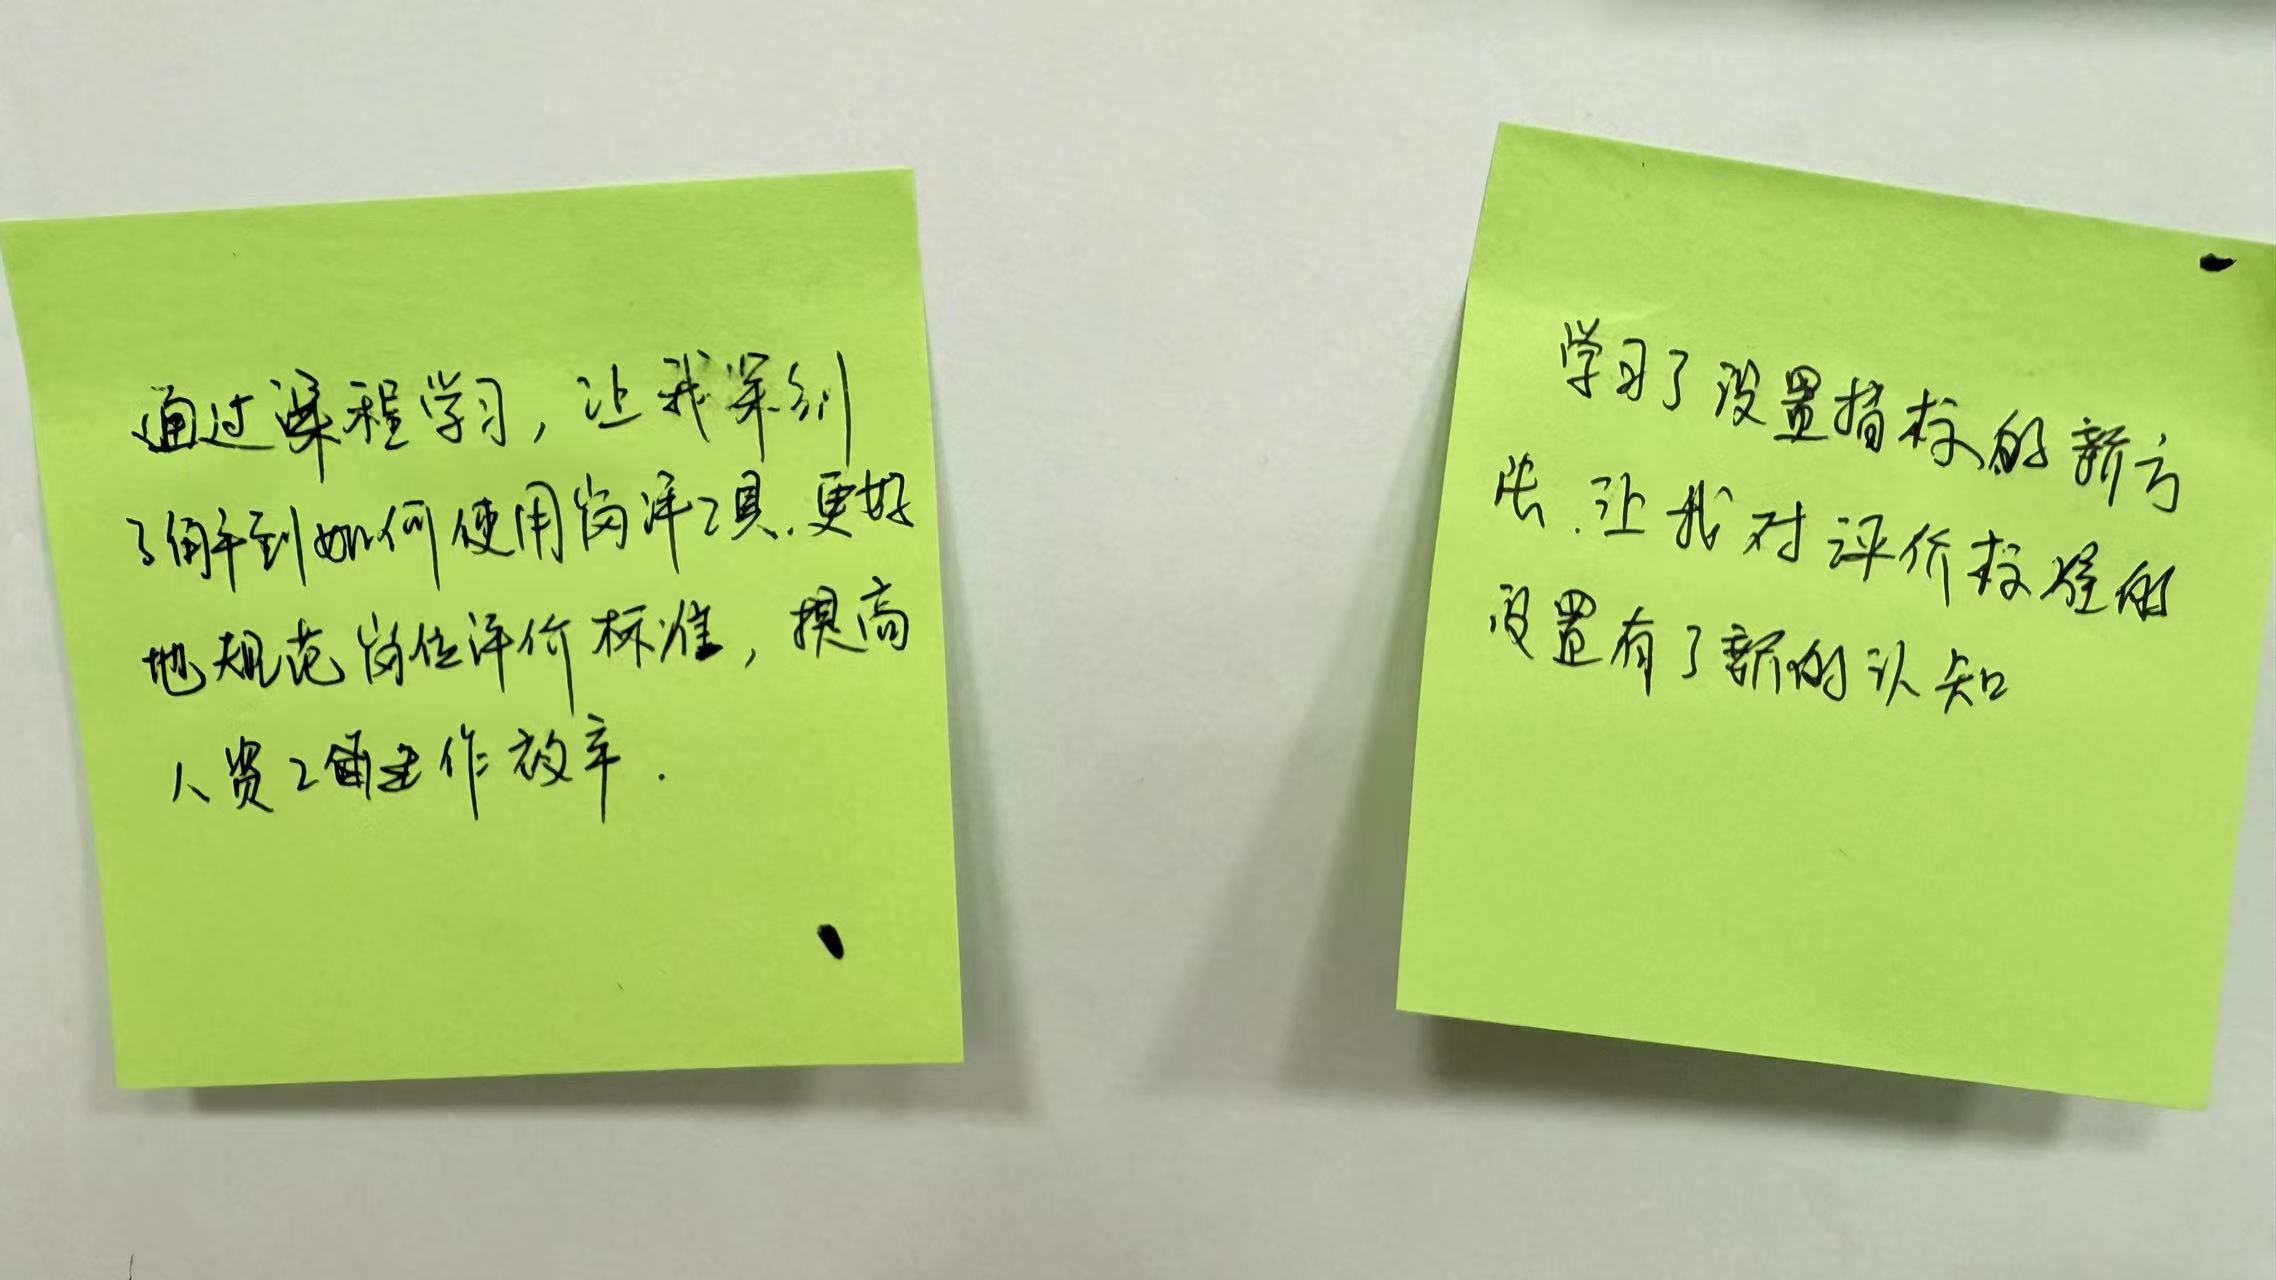 通过课程学习，让我深刻
了解到如何使用岗评工具.更好
地规范岗位评价标准，提高
人资工作效率.
学习了设置指标的新方
法.让我对评价标准的
设置有了新的认知